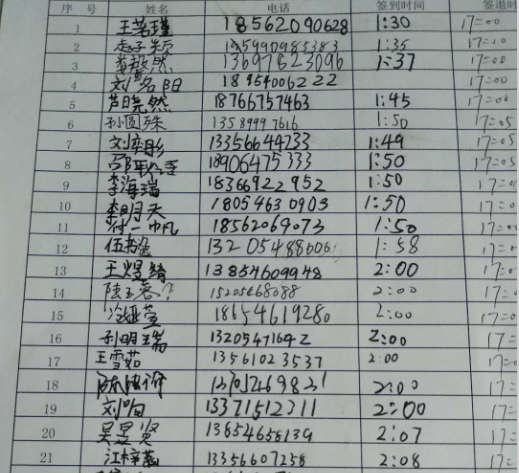 序号 姓名 电话 签到时间 签退时
1 王若瑾 18562090628 1:30 17:00
2 1:35 17:00
3 13697823096 1:37 17:00
4 刘名阳 18954006222 17:00
5 芦晓然 18766757463 1:45 17:00
6 孙圆殊 13589997616 1:50 17:05
7 刘奕彤 13356644233 1:49 17:05
8 18906475333 1:50 17:05
9 李海瑞 18366922952 1:50 17:0
10 李明天 18054630903 1:50 17:0
11 付一帆 18562069073 1:50 17:0
12 13205488006 1:58 17:0
13 王煜绪 13854609948 2:00 17:0
14 15205468088 2:00 17:0
15 18654619280 2:00 17:0
16 孙明瑞 13205471642 2:00 17:
17 王雪茹 13561023537 2:00 17:
18 2:00 17:
19 13371512211 2:00 17:
20 吴昱贤 13854658139 2:07 17:
21 江梓菡 13356607258 2:08 17: